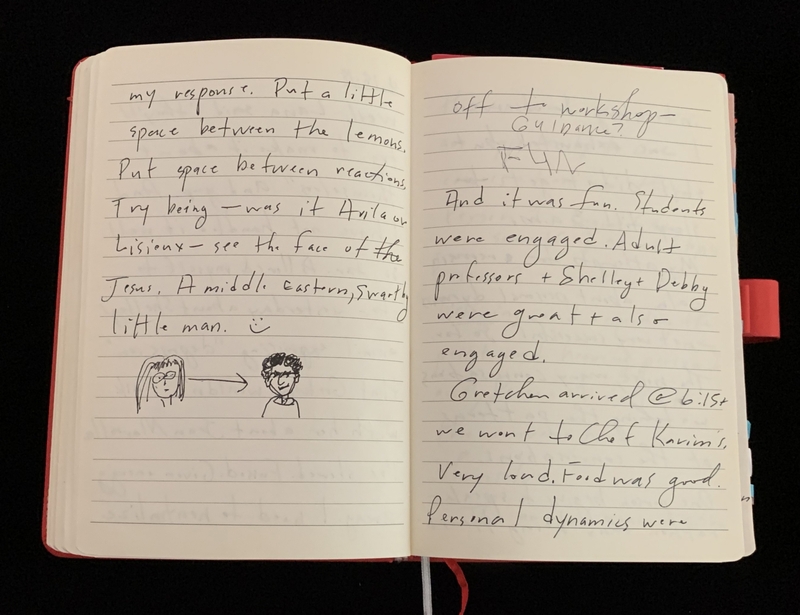 my response. Put a little
space between the lemons.
Put space between reactions.
Try being – was it Avila or
Lisieux – see the face of the
Jesus. A middle Eastern, swarthy
little man.
off to workshop –
Guidance?
FUN
And it was fun. Students
were engaged. Adult
professors + Shelley + Debby
were great + also
engaged.
Gretchen arrived @ 6:15 +
we went to Chef Karim's.
Very loud. Food was good.
Personal dynamics were